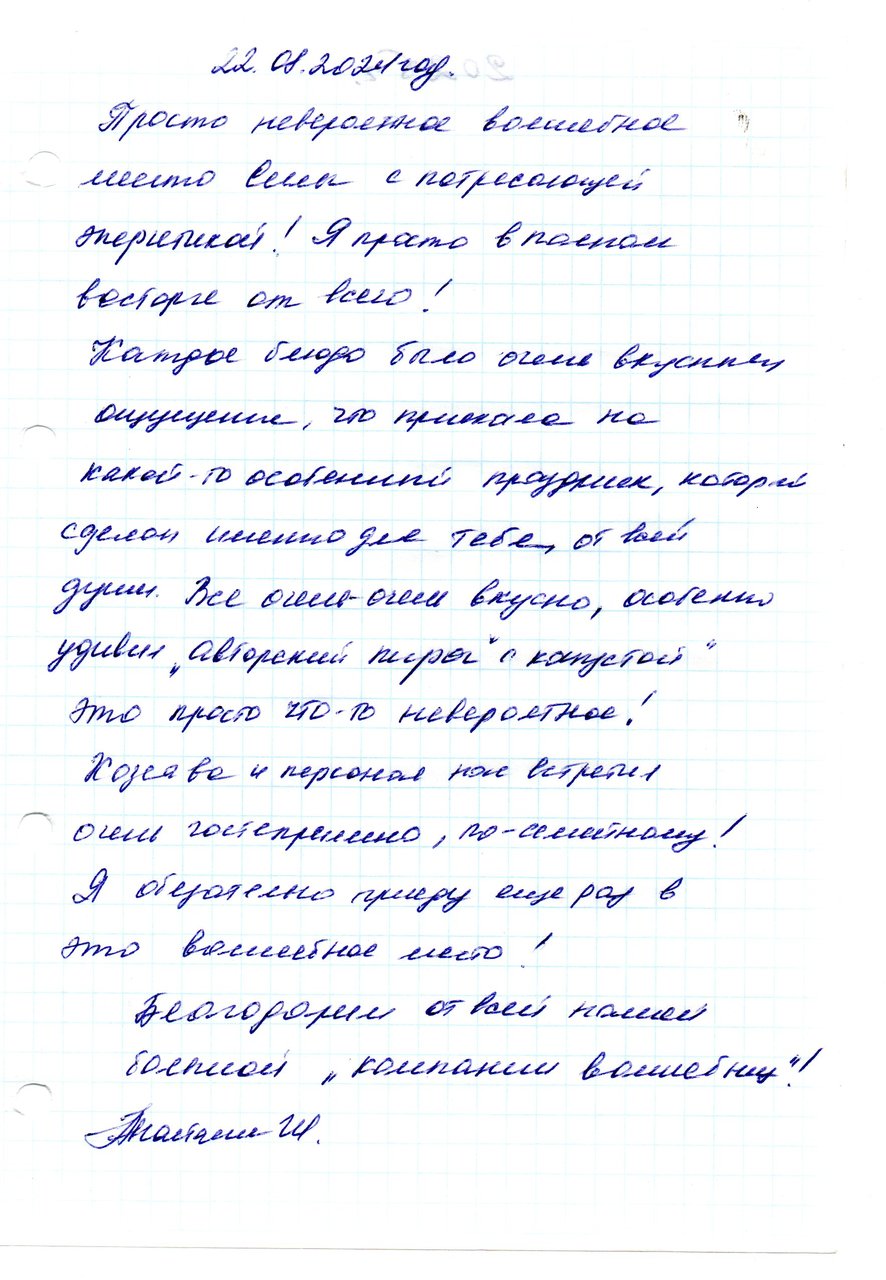 22.08.2024 год.
Просто невероятное волшебное
место Силы с потрясающей
энергетикой! Я просто в полном
восторге от всего!
Каждое блюдо было очень вкусным
ощущение, что приехала на
какой-то особенный праздник, который
сделан именно для тебя, от всей
души. Все очень-очень вкусно, особенно
удивил „Авторский пирог" с капустой"
это просто что-то невероятное!
Хозяева и персонал нас встретил
очень гостеприимно, по-семейному!
Я обязательно приеду еще раз в
это волшебное место!
Благодарим от всей нашей
большой „компании волшебниц"!
Анастасия Ш.